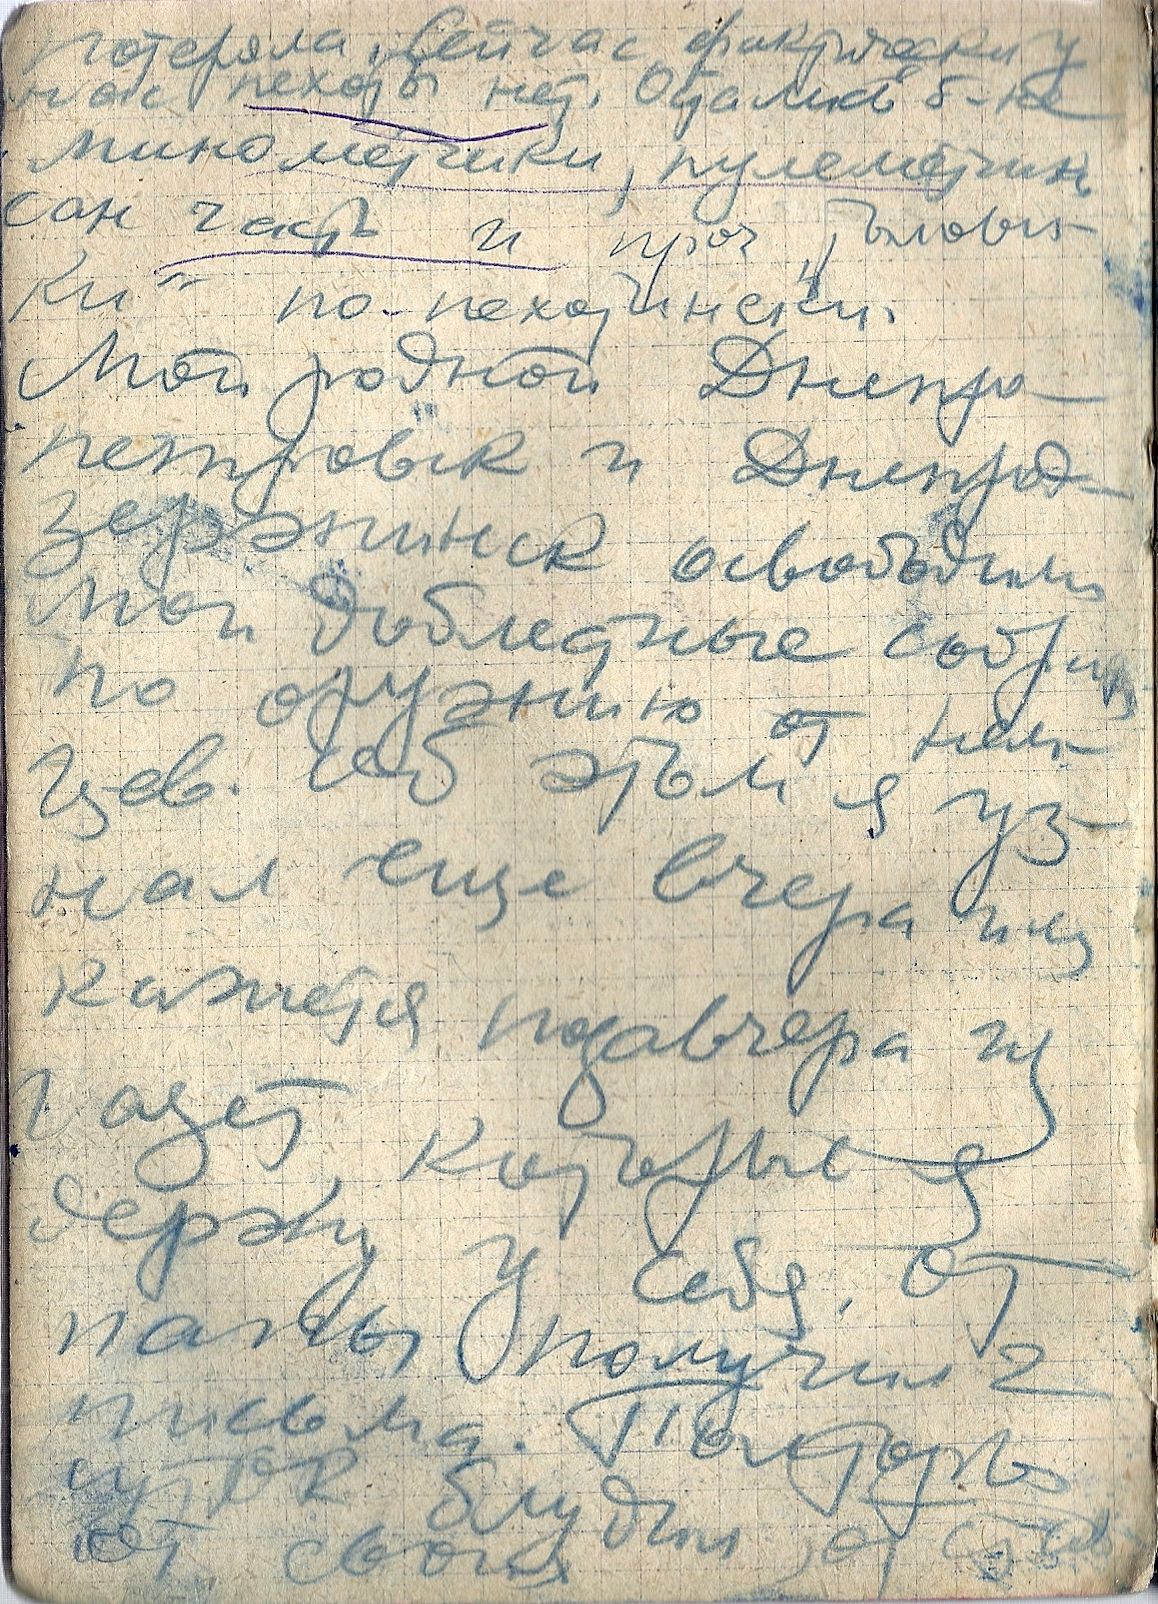 потеряла. Сейчас фактически у
нас пехоты нет. Остались б-не
минометчики, пулеметчик
сан часть и проч „тыловы-
ки" по-пехотински.
Мой родной Днепро-
петровск и Днепрод-
зержинск освободили
мои доблестные собратья
по оружию от нем-
цев. Об этом я уз-
нал еще вчера или
кажется позавчера из
газет, которые я
держу у себя. От
мамы получил 2
письма. Полторы
суток блудил, от
от своих